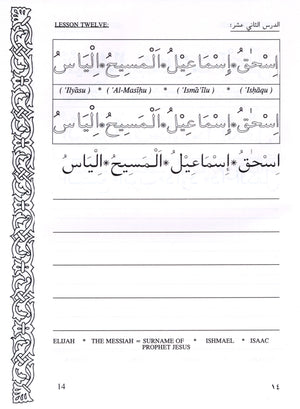 LESSON TWELVE: الدرس الثاني عشر:
إِسْحٰقُ * إِسْمَاعِيْلُ * اَلْمَسِيْحُ * اِلْيَاسُ
( 'Ilyāsu ) ( 'Al-Masīḥu ) ( 'Ismā'īlu ) ( 'Isḥāqu )
إِسْحٰقُ * إِسْمَاعِيْلُ * اَلْمَسِيْحُ * اِلْيَاسُ
إِسْحٰقُ * إِسْمَاعِيْلُ * اَلْمَسِيْحُ * اِلْيَاسُ
ELIJAH * THE MESSIAH = SURNAME OF * ISHMAEL * ISAAC
PROPHET JESUS
14 ١٤